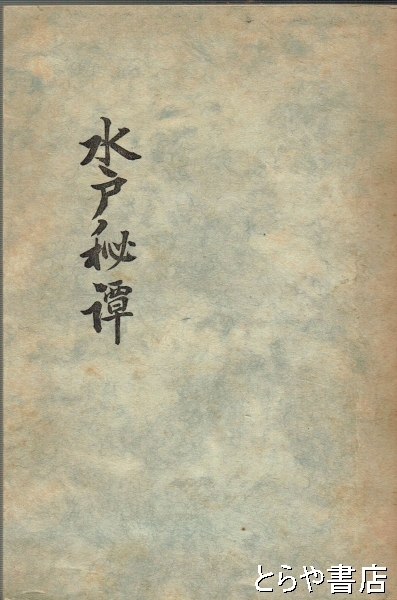 水戸秘譚
とらや書店